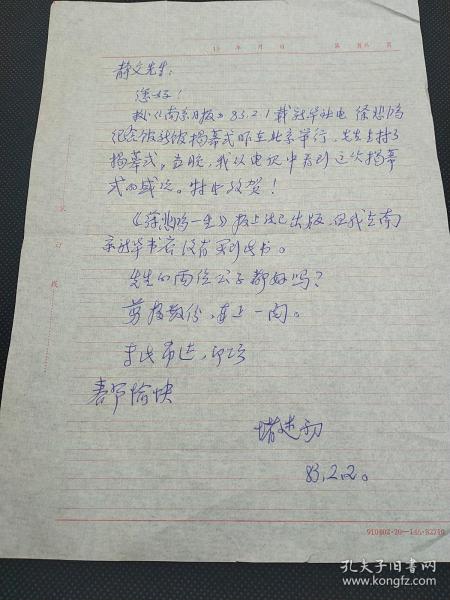 19 年 月 日 第 页共 页
静文先生:
您好!
按《南京日报》83.2.1载新华社电 徐悲鸿
纪念馆新馆揭幕式昨在北京举行,先生主持了
揭幕式,当晚,我从电视中看到这次揭幕
式的盛况。特申致贺!
《徐悲鸿一生》报上说已出版,但我在南
京新华书店没有买到此书。
先生的两位公子都好吗?
剪报数份,寄上一阅。
专此布达,即颂
春节愉快
堵述初
83.2.2。
装 订 线
孔夫子旧书网
www.kongfz.com